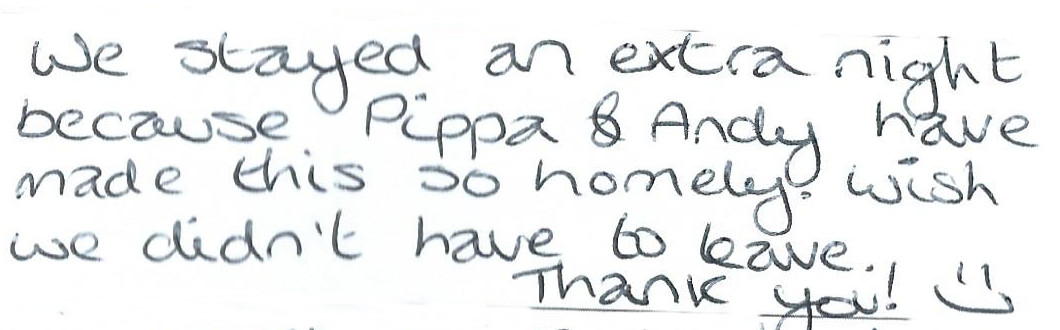 We stayed an extra night
because Pippa & Andy have
made this so homely. Wish
we didn't have to leave.
Thank you! :)